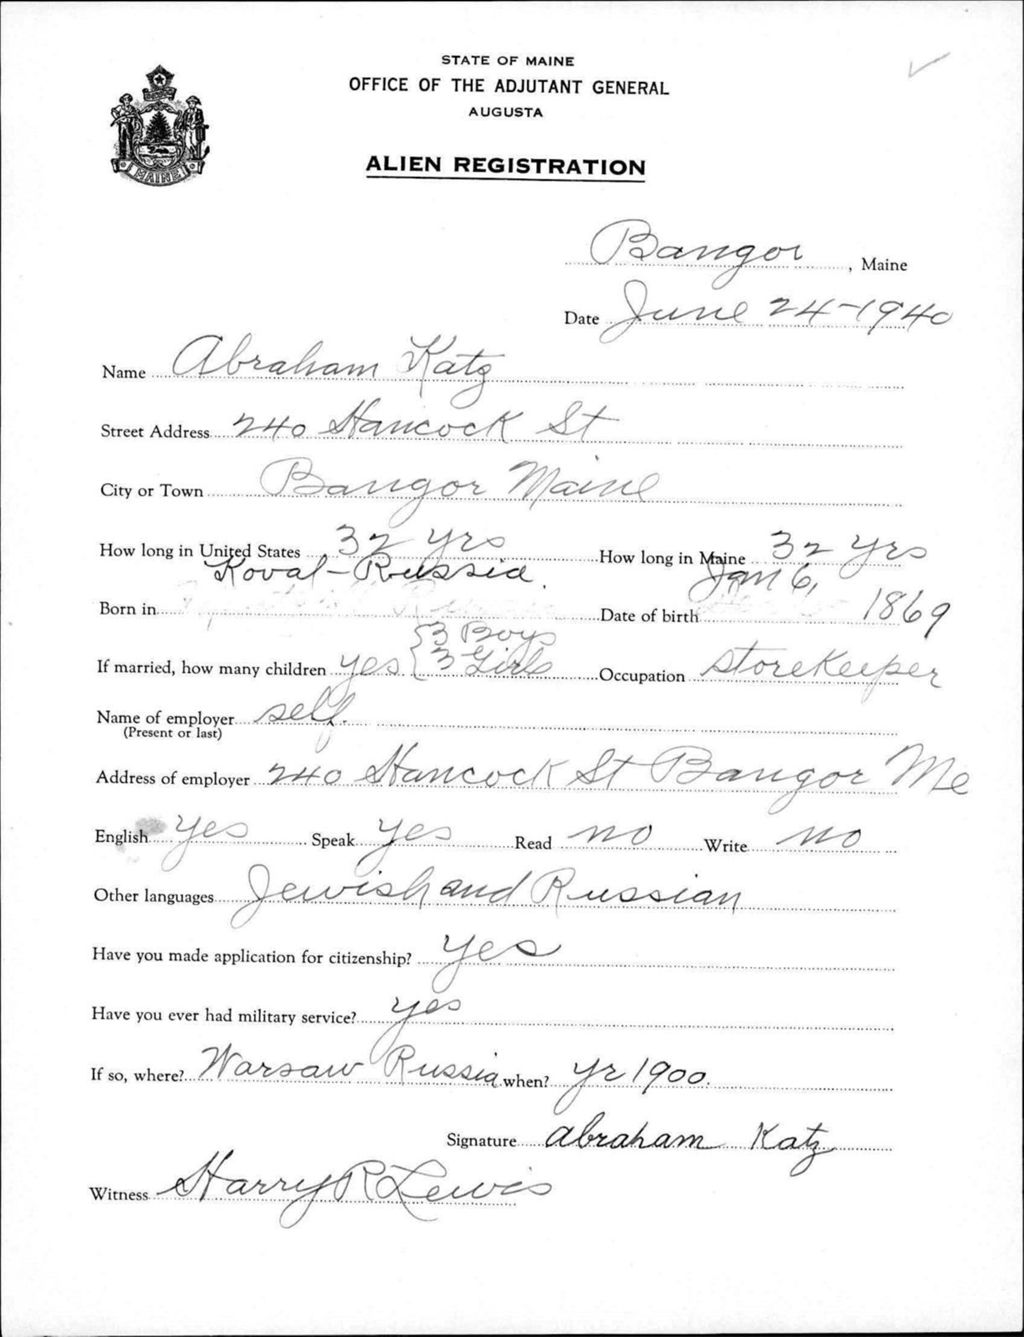 STATE OF MAINE
OFFICE OF THE ADJUTANT GENERAL
AUGUSTA
ALIEN REGISTRATION
MAINE
Bangor, Maine
Date June 24-1940
Name Abraham Katz
Street Address 240 Hancock St
City or Town Bangor Maine
How long in United States 32 yrs How long in Maine 32 yrs
Born in Koval-Russia. Date of birth Jan 6, 1869
If married, how many children yes { 3 Boys 3 Girls Occupation storekeeper
Name of employer self.
(Present or last)
Address of employer 240 Hancock St Bangor Me
English yes Speak yes Read no Write no
Other languages Jewish and Russian
Have you made application for citizenship? yes
Have you ever had military service? yes
If so, where? Warsaw Russia when? yr 1900.
Signature Abraham Katz
Witness Harry R Lewis